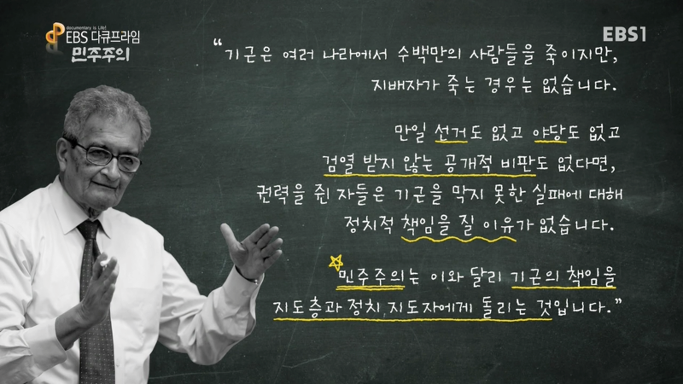 documentary is Life!
EBS 다큐프라임
민주주의
EBS1
“기근은 여러 나라에서 수백만의 사람들을 죽이지만,
지배자가 죽는 경우는 없습니다.
만일 선거도 없고 야당도 없고
검열 받지 않는 공개적 비판도 없다면,
권력을 쥔 자들은 기근을 막지 못한 실패에 대해
정치적 책임을 질 이유가 없습니다.
민주주의는 이와 달리 기근의 책임을
지도층과 정치 지도자에게 돌리는 것입니다.”